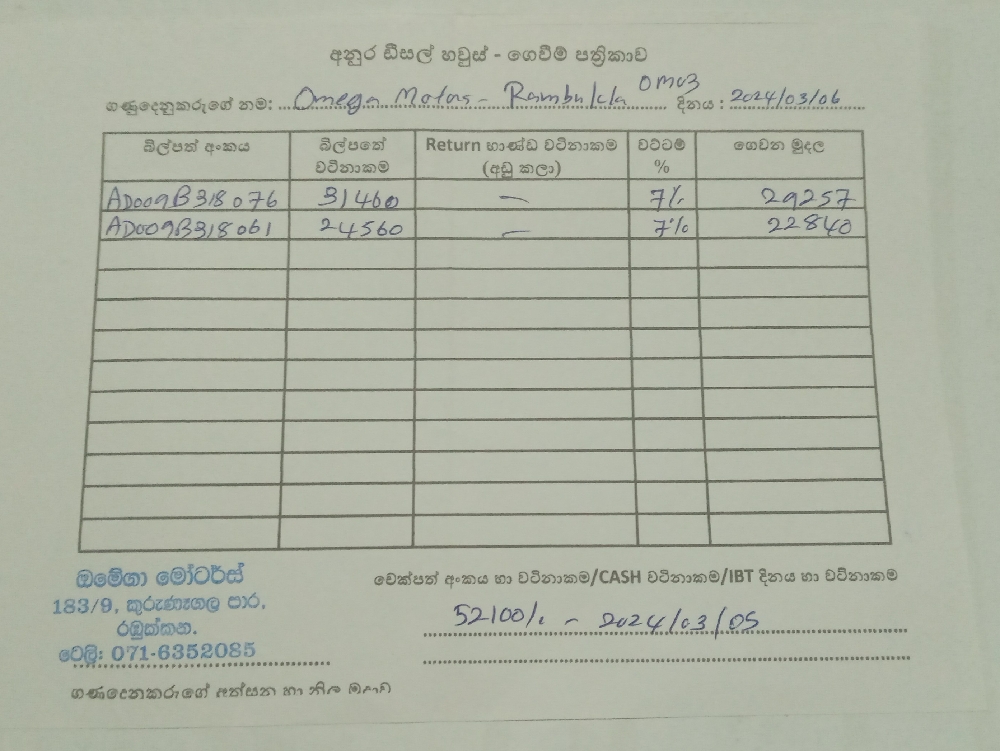 අනුර ඩීසල් හවුස් - ගෙවීම් පත්‍රිකාව
ගණුදෙනුකරුගේ නම: Omega Motors - Rambukla OM03 දිනය : 2024/03/06
බිල්පත් අංකය බිල්පතේ වටිනාකම Return භාණ්ඩ වටිනාකම (අඩු කලා) වට්ටම් % ගෙවන මුදල
AD009B318076 31460 — 7% 29257
AD009B318061 24560 — 7% 22840
ඔමේගා මෝටර්ස්
183/9, කුරුණෑගල පාර,
රඹුක්කන.
ටෙලි: 071-6352085
චෙක්පත් අංකය හා වටිනාකම/CASH වටිනාකම/IBT දිනය හා වටිනාකම
52100/. - 2024/03/05
ගණුදෙනුකරුගේ අත්සන හා නිල මුද්‍රාව